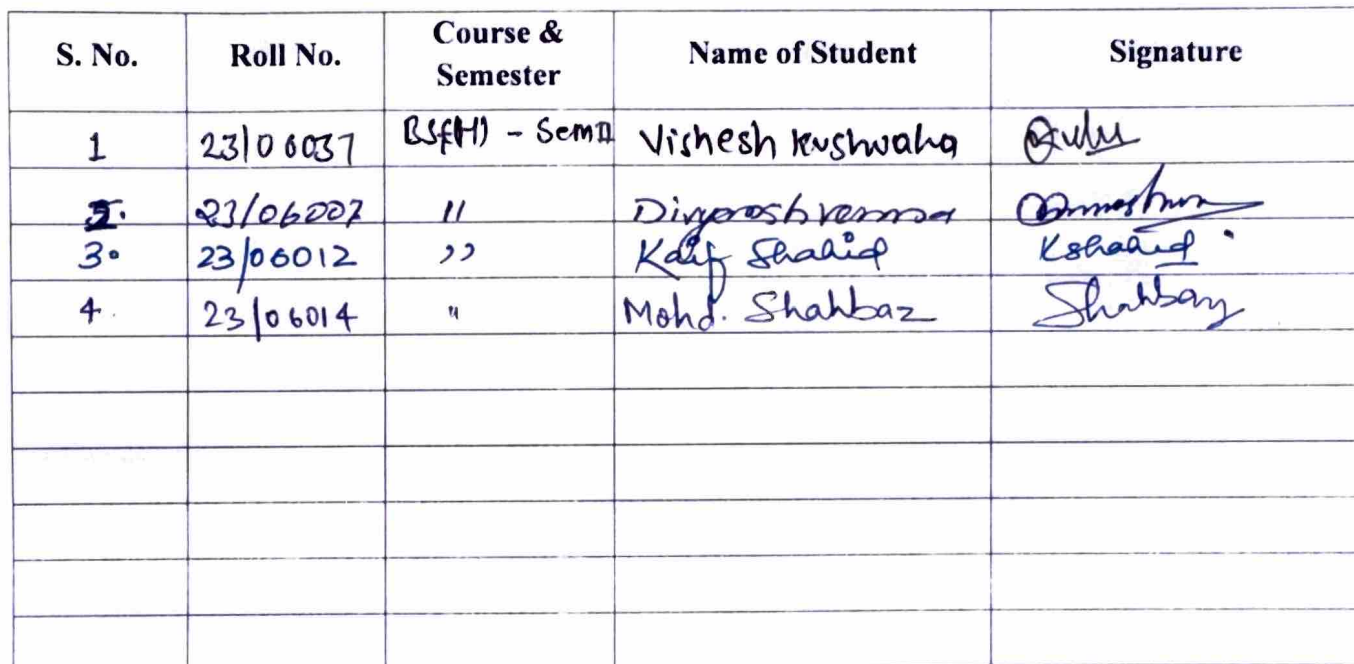 S. No. Roll No. Course & Semester Name of Student Signature
1 23/06037 BSc(H) - Sem II Vishesh Kushwaha
2. 23/06007 " Verma
3. 23/06012 " Kaif Shahid Kshahid
4. 23/06014 " Mohd. Shahbaz Shahbaz